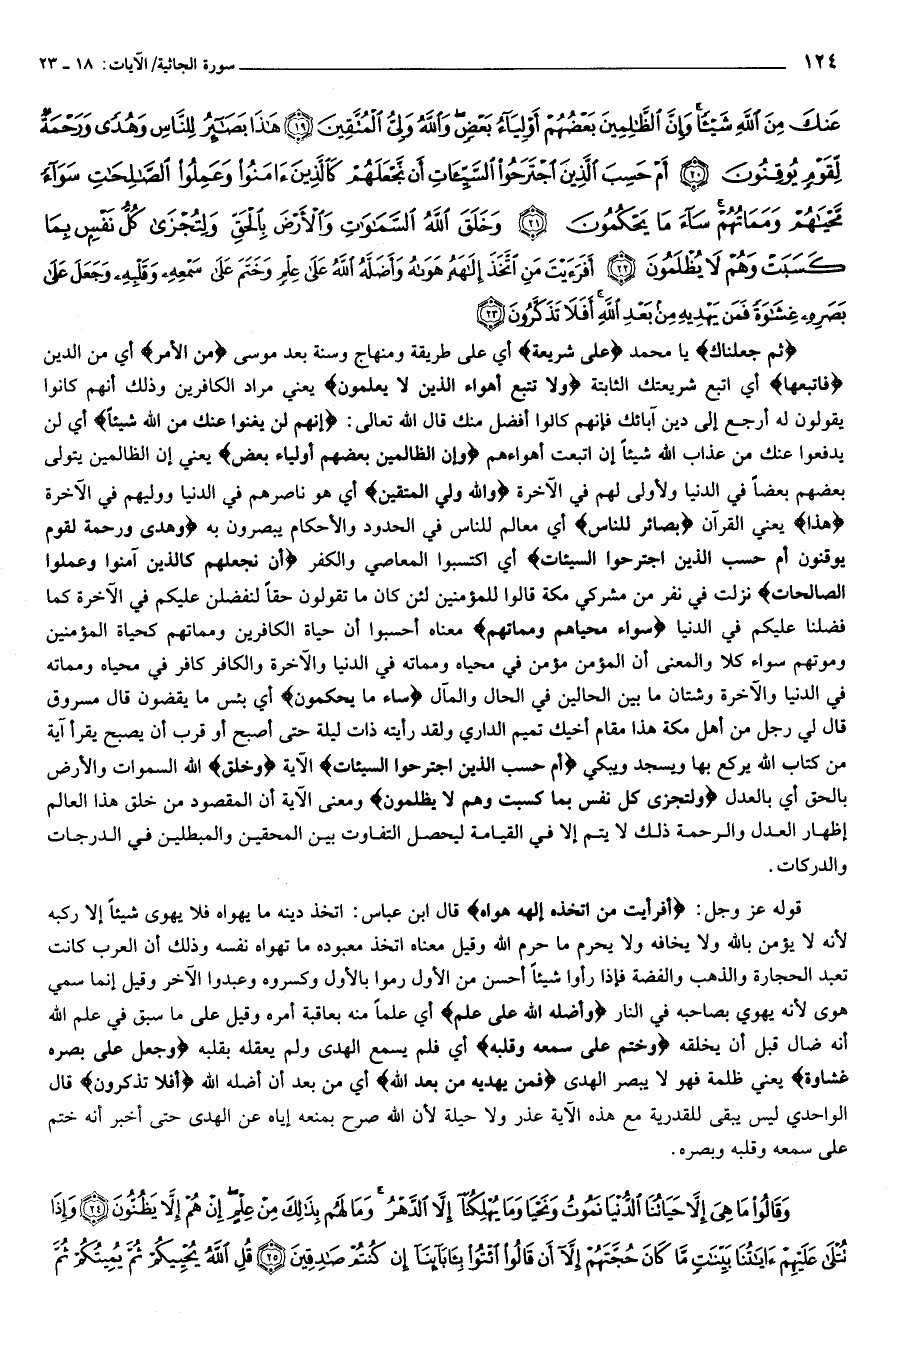 ١٢٤ سورة الجاثية/ الآيات: ١٨ ـ ٢٣
عَنكَ مِنَ ٱللَّهِ شَيْـًٔا وَإِنَّ ٱلظَّٰلِمِينَ بَعْضُهُمْ أَوْلِيَآءُ بَعْضٍ وَٱللَّهُ وَلِىُّ ٱلْمُتَّقِينَ ﴿١٩﴾ هَٰذَا بَصَٰٓئِرُ لِلنَّاسِ وَهُدًى وَرَحْمَةٌ
لِّقَوْمٍ يُوقِنُونَ ﴿٢٠﴾ أَمْ حَسِبَ ٱلَّذِينَ ٱجْتَرَحُوا۟ ٱلسَّيِّـَٔاتِ أَن نَّجْعَلَهُمْ كَٱلَّذِينَ ءَامَنُوا۟ وَعَمِلُوا۟ ٱلصَّٰلِحَٰتِ سَوَآءً
مَّحْيَاهُمْ وَمَمَاتُهُمْ سَآءَ مَا يَحْكُمُونَ ﴿٢١﴾ وَخَلَقَ ٱللَّهُ ٱلسَّمَٰوَٰتِ وَٱلْأَرْضَ بِٱلْحَقِّ وَلِتُجْزَىٰ كُلُّ نَفْسٍۭ بِمَا
كَسَبَتْ وَهُمْ لَا يُظْلَمُونَ ﴿٢٢﴾ أَفَرَءَيْتَ مَنِ ٱتَّخَذَ إِلَٰهَهُۥ هَوَىٰهُ وَأَضَلَّهُ ٱللَّهُ عَلَىٰ عِلْمٍ وَخَتَمَ عَلَىٰ سَمْعِهِۦ وَقَلْبِهِۦ وَجَعَلَ عَلَىٰ
بَصَرِهِۦ غِشَٰوَةً فَمَن يَهْدِيهِ مِنۢ بَعْدِ ٱللَّهِ أَفَلَا تَذَكَّرُونَ ﴿٢٣﴾
﴿ثم جعلناك﴾ يا محمد ﴿على شريعة﴾ أي على طريقة ومنهاج وسنة بعد موسى ﴿من الأمر﴾ أي من الدين
﴿فاتبعها﴾ أي اتبع شريعتك الثابتة ﴿ولا تتبع أهواء الذين لا يعلمون﴾ يعني مراد الكافرين وذلك أنهم كانوا
يقولون له أرجع إلى دين آبائك فإنهم كالوا أفضل منك قال الله تعالى: ﴿إنهم لن يغنوا عنك من الله شيئاً﴾ أي لن
يدفعوا عنك من عذاب الله شيئاً إن اتبعت أهواءهم ﴿وإن الظالمين بعضهم أولياء بعض﴾ يعني إن الظالمين يتولى
بعضهم بعضاً في الدنيا ولأولى لهم في الآخرة ﴿والله ولي المتقين﴾ أي هو ناصرهم في الدنيا ووليهم في الآخرة
﴿هذا﴾ يعني القرآن ﴿بصائر للناس﴾ أي معالم للناس في الحدود والأحكام يبصرون به ﴿وهدى ورحمة لقوم
يوقنون أم حسب الذين اجترحوا السيئات﴾ أي اكتسبوا المعاصي والكفر ﴿أن نجعلهم كالذين آمنوا وعملوا
الصالحات﴾ نزلت في نفر من مشركي مكة قالوا للمؤمنين لئن كان ما تقولون حقاً لنفضلن عليكم في الآخرة كما
فضلنا عليكم في الدنيا ﴿سواء محياهم ومماتهم﴾ معناه أحسبوا أن حياة الكافرين ومماتهم كحياة المؤمنين
وموتهم سواء كلا والمعنى أن المؤمن مؤمن في محياه ومماته في الدنيا والآخرة والكافر كافر في محياه ومماته
في الدنيا والآخرة وشتان ما بين الحالين في الحال والمآل ﴿ساء ما يحكمون﴾ أي بئس ما يقضون قال مسروق
قال لي رجل من أهل مكة هذا مقام أخيك تميم الداري ولقد رأيته ذات ليلة حتى أصبح أو قرب أن يصبح يقرأ آية
من كتاب الله يركع بها ويسجد ويبكي ﴿أم حسب الذين اجترحوا السيئات﴾ الآية ﴿وخلق﴾ الله السموات والأرض
بالحق أي بالعدل ﴿ولتجزى كل نفس بما كسبت وهم لا يظلمون﴾ ومعنى الآية أن المقصود من خلق هذا العالم
إظهار العدل والرحمة ذلك لا يتم إلا في القيامة ليحصل التفاوت بين المحقين والمبطلين في الدرجات
والدركات.
قوله عز وجل: ﴿أفرأيت من اتخذه إلهه هواه﴾ قال ابن عباس: اتخذ دينه ما يهواه فلا يهوى شيئاً إلا ركبه
لأنه لا يؤمن بالله ولا يخافه ولا يحرم ما حرم الله وقيل معناه اتخذ معبوده ما تهواه نفسه وذلك أن العرب كانت
تعبد الحجارة والذهب والفضة فإذا رأوا شيئاً أحسن من الأول رموا بالأول وكسروه وعبدوا الآخر وقيل إنما سمي
هوى لأنه يهوي بصاحبه في النار ﴿وأضله الله على علم﴾ أي علماً منه بعاقبة أمره وقيل على ما سبق في علم الله
أنه ضال قبل أن يخلقه ﴿وختم على سمعه وقلبه﴾ أي فلم يسمع الهدى ولم يعقله بقلبه ﴿وجعل على بصره
غشاوة﴾ يعني ظلمة فهو لا يبصر الهدى ﴿فمن يهديه من بعد الله﴾ أي من بعد أن أضله الله ﴿أفلا تذكرون﴾ قال
الواحدي ليس يبقى للقدرية مع هذه الآية عذر ولا حيلة لأن الله صرح بمنعه إياه عن الهدى حتى أخبر أنه ختم
على سمعه وقلبه وبصره.
وَقَالُوا۟ مَا هِىَ إِلَّا حَيَاتُنَا ٱلدُّنْيَا نَمُوتُ وَنَحْيَا وَمَا يُهْلِكُنَآ إِلَّا ٱلدَّهْرُ وَمَا لَهُم بِذَٰلِكَ مِنْ عِلْمٍ إِنْ هُمْ إِلَّا يَظُنُّونَ ﴿٢٤﴾ وَإِذَا
تُتْلَىٰ عَلَيْهِمْ ءَايَٰتُنَا بَيِّنَٰتٍ مَّا كَانَ حُجَّتَهُمْ إِلَّآ أَن قَالُوا۟ ٱئْتُوا۟ بِـَٔابَآئِنَآ إِن كُنتُمْ صَٰدِقِينَ ﴿٢٥﴾ قُلِ ٱللَّهُ يُحْيِيكُمْ ثُمَّ يُمِيتُكُمْ ثُمَّ